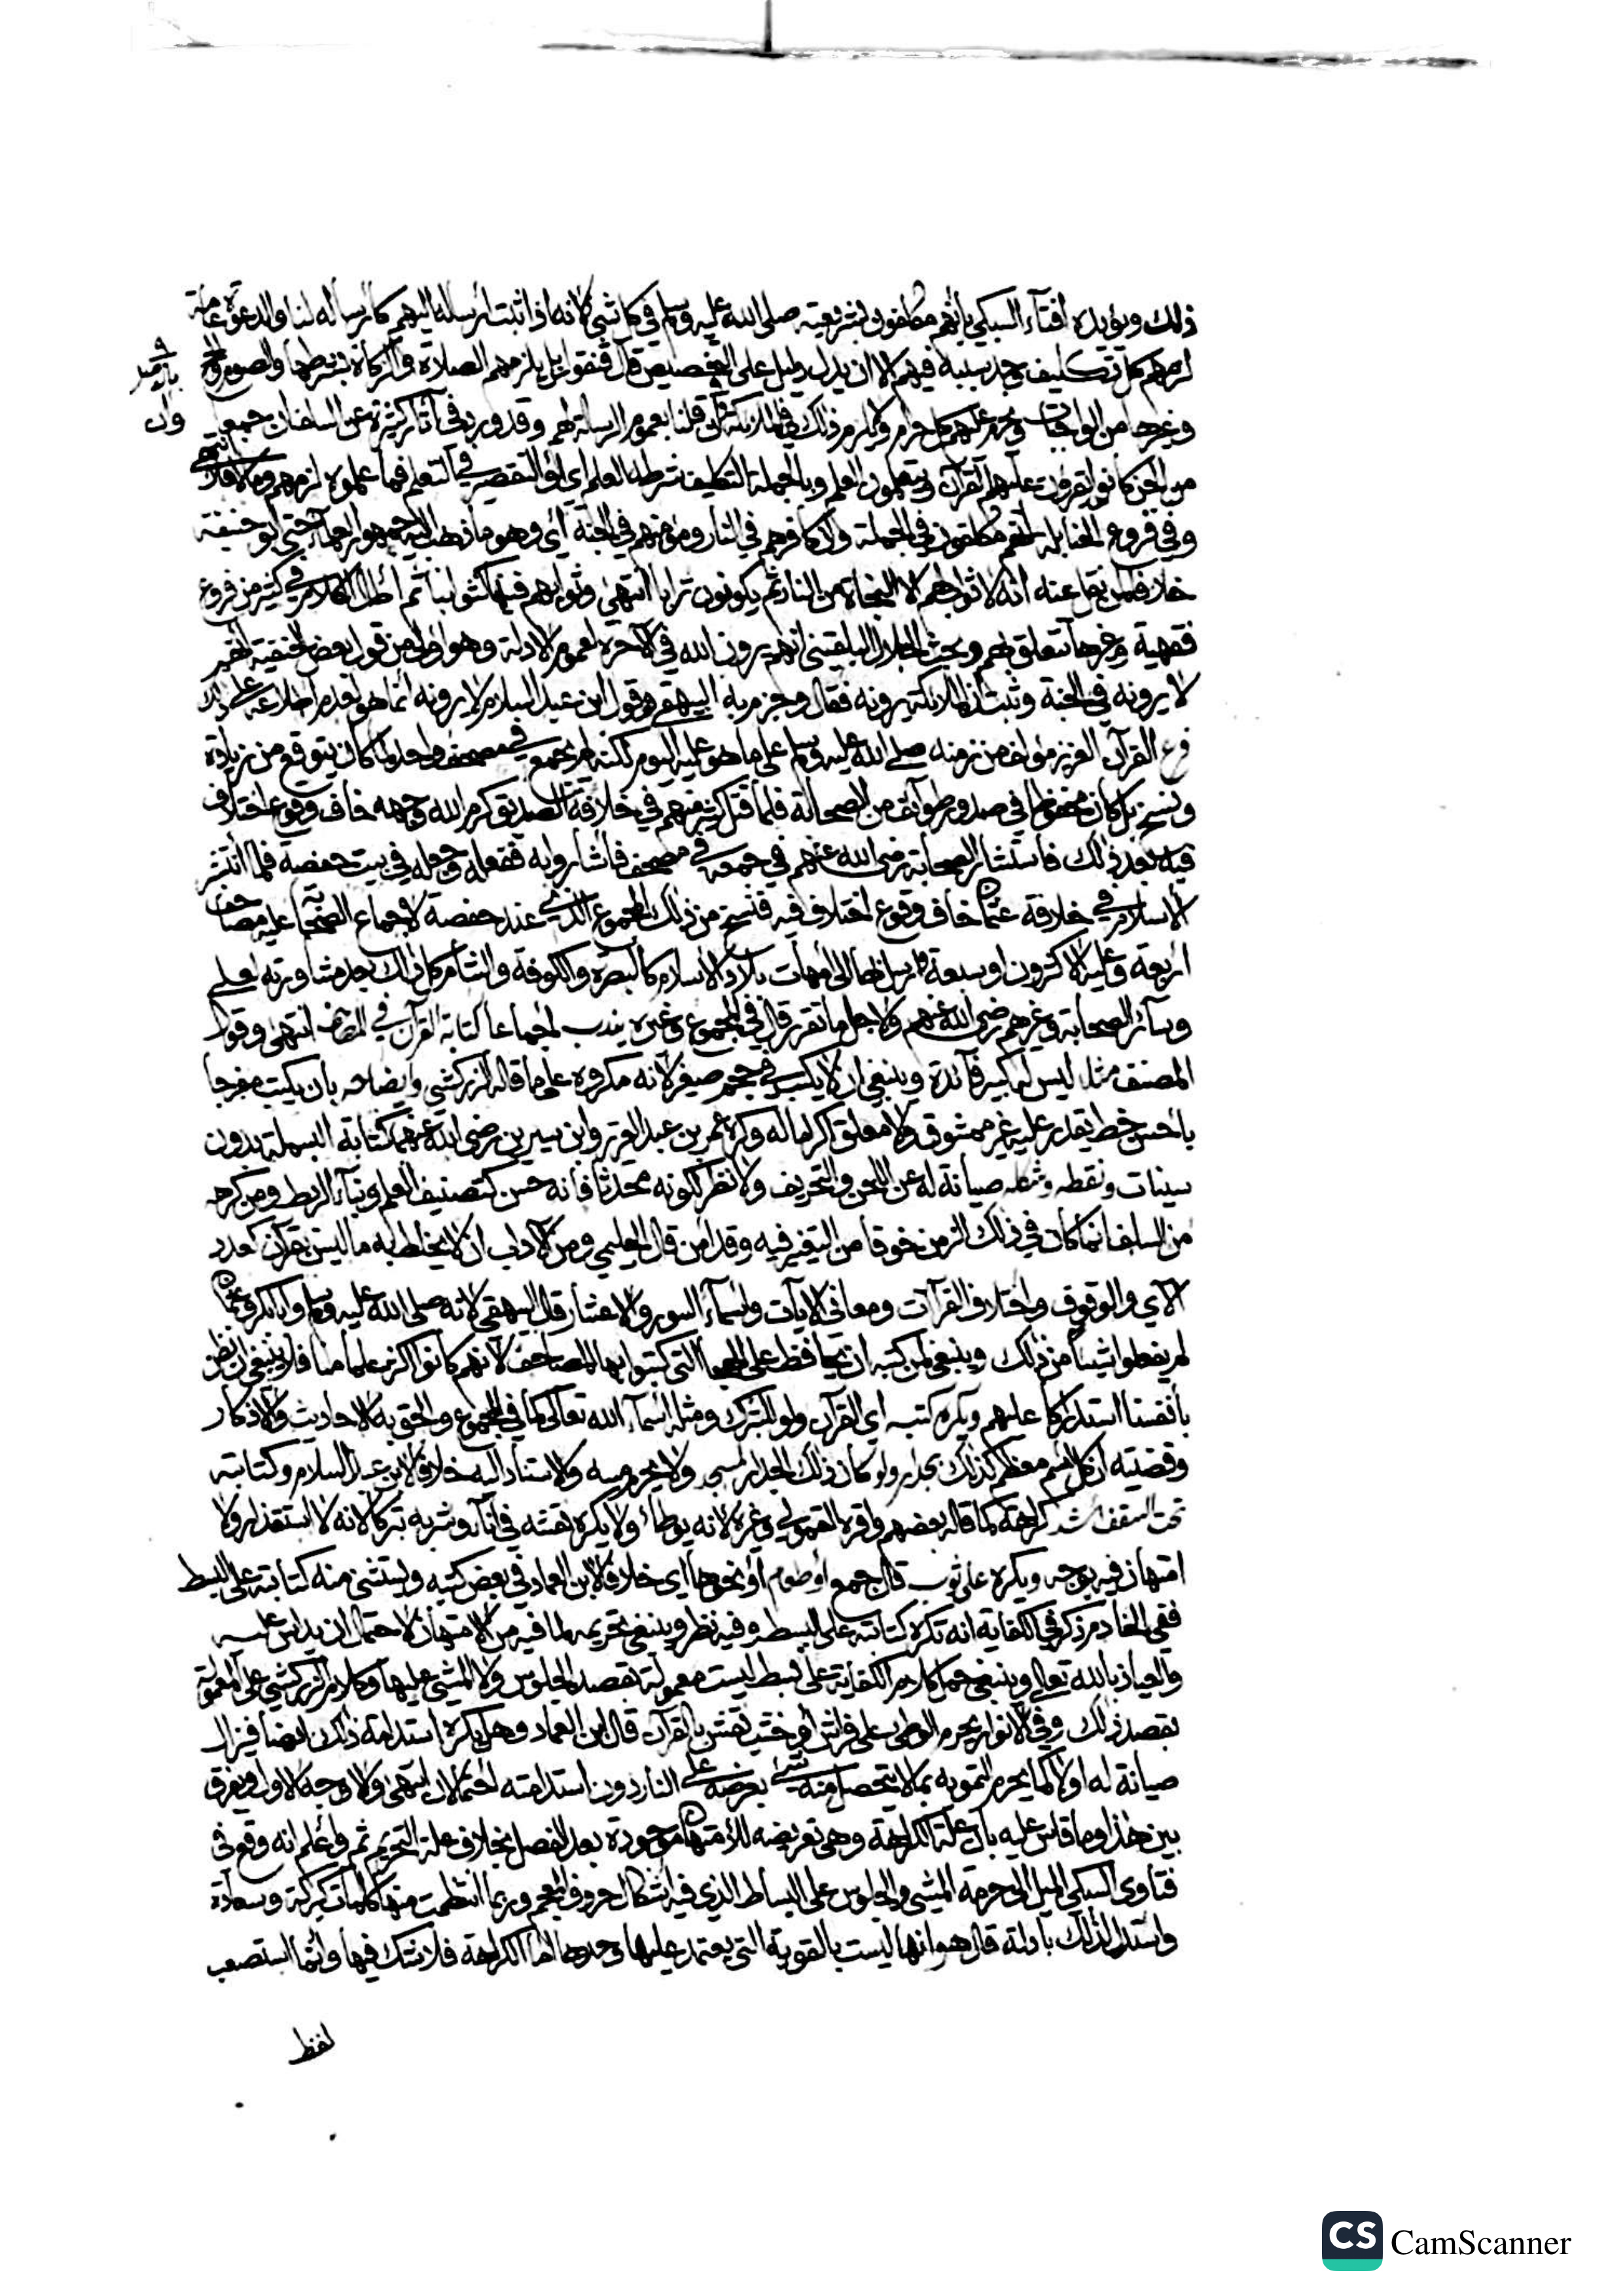 ذلك ويؤيده افتاء السبكي بأنهم مكلفون بشريعته صلى الله عليه وسلم في كل شئ لانه اذا ثبت ارساله اليهم كارساله لنا والدعوة عامة
لزمهم كل تكليف وجد سببه فيهم الا ان يدل دليل على التخصيص قال فنقول يلزمهم الصلاة والزكاة بشرطها والصوم والحج
وغيرها من الواجبات ويحرم عليهم كل حرام ولا يلزم ذلك في الملائكة وان قلنا بعموم الرسالة لهم وقد ورد في آثار كثيرة عن السلف ان جمعا
من الجن كانوا يقرؤن عليهم القرآن ويتعلمون العلم وبالجملة التكليف شرطه العلم اي او التقصير في التعلم فما علموه لزمهم وما لا فلا انتهى
وفي فروع الحنابلة انهم مكلفون في الجملة وان كافرهم في النار ومؤمنهم في الجنة أي وهو ما ذهب اليه جمهور العلماء حتى ابو حنيفة
خلافا لمن نقل عنه انه لا ثواب لهم الا النجاة من النار ثم يكونون ترابا انتهى وثوابهم فيها كثوابنا ثم اطال الكلام في كثير من فروع
فقهية وغيرها تتعلق بهم وبحث الجلال البلقيني انهم يرون الله في الآخرة لعموم الادلة وهو اولى من قول بعض الحنفية انهم
لا يرونه في الجنة وثبت ان الملائكة يرونه فقال وجزم به البيهقي وقول ابن عبد السلام لا يرونه انما هو لعدم اطلاعه على ذلك
فرع القرآن العزيز مؤلف من زمنه صلى الله عليه وسلم على ما هو عليه اليوم لكنه لم يجمع في مصحف واحد لما كان يتوقع من زيادة
ونسخ بل كان محفوظا في صدور طوائف من الصحابة فلما قتل كثير منهم في خلافة الصديق كرم الله وجهه خاف وقوع اختلاف
فيه بعد ذلك فاستشار الصحابة رضي الله عنهم في جمعه في مصحف فأشاروا به ففعله وجعله في بيت حفصة فلما انتشر
الاسلام في خلافة عثمان خاف وقوع اختلاف فيه فنسخ من ذلك المجموع الذي عند حفصة لاجماع الصحابة عليه مصاحف
اربعة وعليه الاكثرون او سبعة وارسلها الى امهات بلاد الاسلام كالبصرة والكوفة والشام كل ذلك بعد مشاورته لعلي
وسائر الصحابة وغيرهم رضي الله عنهم ولاجل ما تقرر قال في المجموع وغيره يندب اجماعا كتابة القرآن في المصحف انتهى وقول
المصنف مثله ليس له كبير فائدة وينبغي ان لا يكتب في حجم صغير لانه مكروه على ما قاله الزركشي وايضاحه بان يكتب مفرجا
بأحسن خط يقدر عليه غير ممشوق ولا معلق اكراما له وكره عمر بن عبد العزيز وابن سيرين رضي الله عنهما كتابة البسملة بدون
سينات ونقطه وشكله صيانة له عن اللحن والتحريف ولا نظر لكونه محدثا فانه حسن كتصنيف العلم وبناء الربط ومن كرهه
من السلف انما كان في ذلك الزمن خوفا من التغير فيه وقد امن قال الحليمي ومن الآداب ان لا يخلط به ما ليس بقرآن كعدد
الآي والوقوف واختلاف القراآت ومعاني الايات واسماء السور والاعشار قال البيهقي لانه صلى الله عليه وسلم وابا بكر وعثمان
لم يفعلوا شيئا من ذلك وينبغي لمن كتبه ان يحافظ على الهجاء التي كتبوا بها المصاحف لانهم كانوا اكثر علما منا فلا ينبغي ان نظن
بأنفسنا استدراكا عليهم ويكره كتب اي القرآن ولو للتبرك ومثله اسماء الله تعالى كما في المجموع والحق به الاحاديث والاذكار
وقضيته ان كل اسم معظم كذلك بجدار ولو كان ذلك الجدار لمسجد ولا يحرم مسه والاستناد اليه خلافا لابن عبد السلام وكتابته
تحت السقف اشد كراهة كما قاله بعضهم واقره القمولي وغيره لانه يوطأ ولا يكره نقشه في اناء وشربه تبركا لانه لا استقذار ولا
امتهان فيه بوجه ويكره على ثوب قال جمع أو طعام أو نحوها اي خلافا لابن العماد في بعض كتبه ويستثنى منه كتابته على البسط
ففي الخادم ذكر في الكفاية انه تكره كتابته على البسط وفيه نظر وينبغي تحريمه لما فيه من الامتهان لاحتمال ان يداس عليه
والعياذ بالله تعالى وينبغي حمل كلام الكفاية على بسط ليست معمولة بقصد الجلوس ولا المشي عليها وكلام الزركشي على المعمولة
بقصد ذلك وفي الانوار يحرم الوطئ على فراش أو خشب نقش بالقرآن قال ابن العماد وهل يكره استدامة ذلك ايضا فيزال
صيانة له اولا كما يحرم التمويه بما لا يتحصل منه شئ بعرضه على النار دون استدامته احتمالان انتهى والاوجه الاول ويفرق
بين هذا وما قاس عليه بان علة الكراهة وهي تعريضه للامتهان موجودة بعد الفصل بخلاف علة التحريم ثم واعلم انه وقع في
فتاوى السبكي الميل الى حرمة المشي والجلوس على البساط الذي فيه اشكال حروف المعجم وربما انتظمت منها كلمات كبركة وسعادة
واستدل لذلك بادلة قال هو انها ليست بالقوية التي يعتمد عليها وحدها اما الكراهة فلا شك فيها وانما استصعب
لفظ